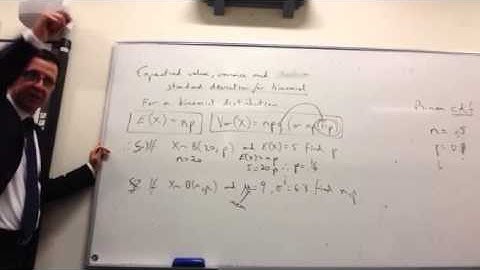 Expected value, variance and
standard deviation for binomial
For a binomial distribution
E(X) = np Var(X) = npq (or np(1-p))
If X~B(20,p) and E(X)=5 find p
n=20 E(X)=np
5=20p ∴ p=
If X~B(n,p) and μ=9, σ²=6.3 find n,p
n =
p =